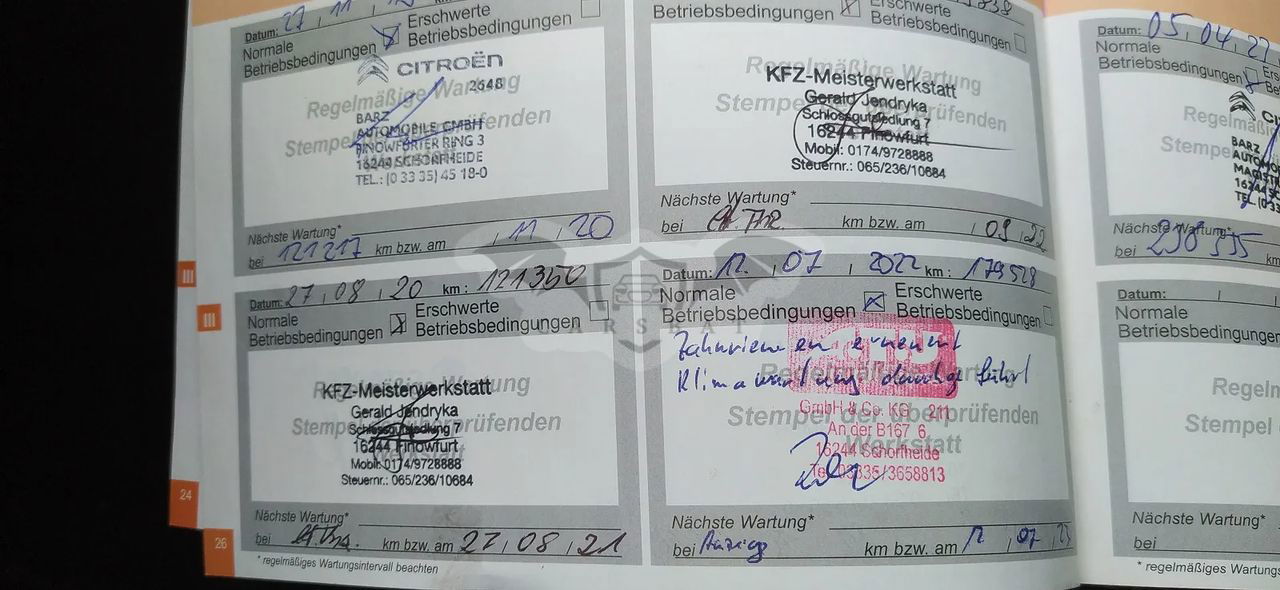 Datum: 27, 11,
Normale
Betriebsbedingungen
Erschwerte
Betriebsbedingungen
Regelmäßige Wartung
CITROËN
2648
BARZ
AUTOMOBILE GMBH
FINOWFURTER RING 3
16244 SCHORFHEIDE
TEL.: (0 33 35) 45 18-0
Nächste Wartung*
bei 121217 km bzw. am , 11 , 20
Betriebsbedingungen
Erschwerte
Betriebsbedingungen
Regelmäßige Wartung
Stempel der überprüfenden
KFZ-Meisterwerkstatt
Gerald Jendryka
Schlossgutsiedlung 7
16244 Finowfurt
Mobil: 0174/9728888
Steuernr.: 065/236/10684
Nächste Wartung*
bei km bzw. am , 09 , 22
Datum: 27, 08, 20 km: 121350
Normale
Betriebsbedingungen
Erschwerte
Betriebsbedingungen
KFZ-Meisterwerkstatt
Gerald Jendryka
Schlossgutsiedlung 7
16244 Finowfurt
Mobil: 0174/9728888
Steuernr.: 065/236/10684
Nächste Wartung*
bei km bzw. am 27, 08, 21
* regelmäßiges Wartungsintervall beachten
Datum: 12. , 07 , 2022 km: 179528
Normale
Betriebsbedingungen
Erschwerte
Betriebsbedingungen
Zahnriemen erneuert
Klimawartung durchgeführt
Regelmäßige Wartung
Stempel der überprüfenden
Werkstatt
GmbH & Co. KG 211
An der B167 6
16244 Schorfheide
Tel. 03335/3658813
Nächste Wartung*
bei Anzeige km bzw. am 12 , 07 , 23
Datum: 05, 04, 27
Normale
Betriebsbedingungen
Regelmäßig
Stempel
BARZ
Nächste Wartung*
bei km
Datum: / /
Normale
Betriebsbedingungen
Stempel
Nächste Wartung*
bei
* regelmäßiges Wartungs
24
26
III
III